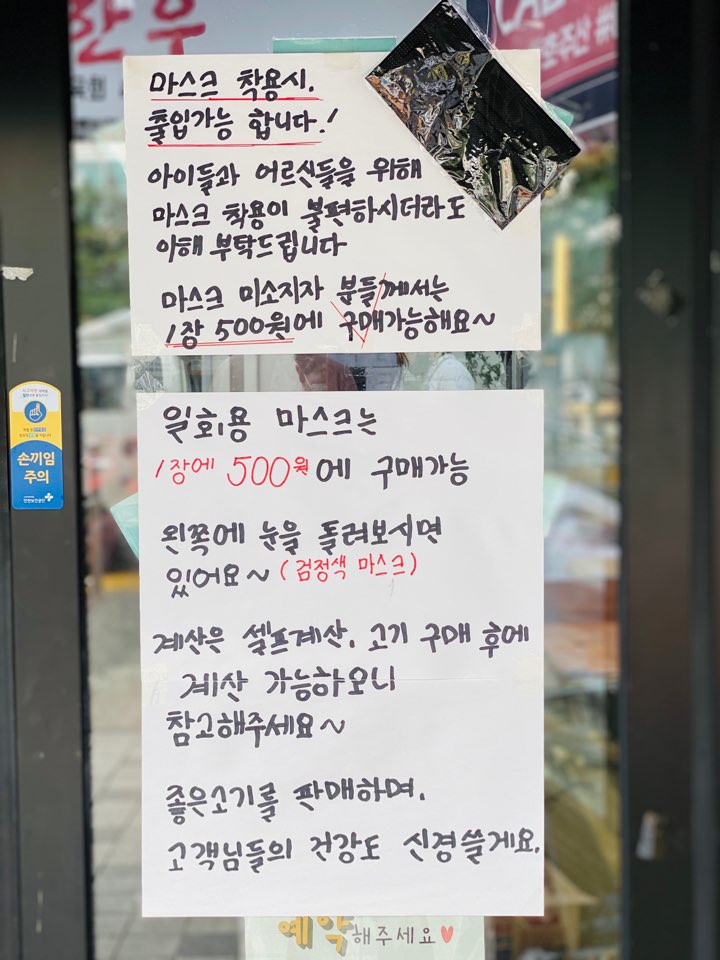 한우
호주산
마스크 착용시.
출입가능 합니다.!
아이들과 어르신들을 위해
마스크 착용이 불편하시더라도
이해 부탁드립니다
마스크 미소지자 분들께서는
1장 500원에 구매가능해요~
일회용 마스크는
1장에 500원에 구매가능
왼쪽에 눈을 돌려보시면
있어요~ (검정색 마스크)
손끼임
주의
계산은 셀프계산. 고기 구매 후에
계산 가능하오니
참고해주세요~
좋은소기를 판매하며.
고객님들의 건강도 신경쓸게요.
예약해주세요♥